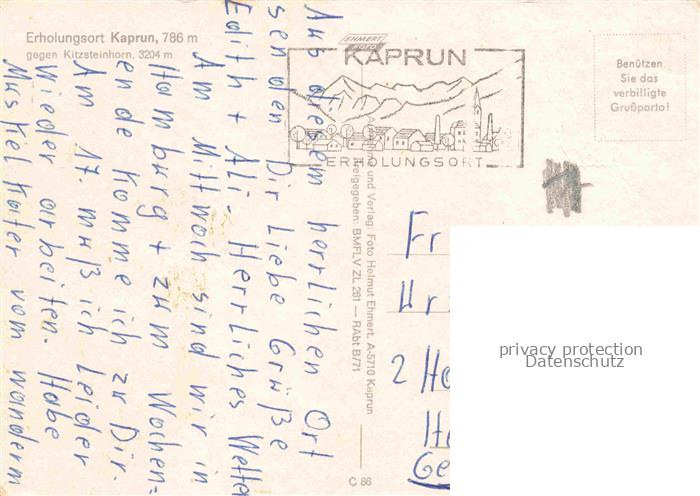 Erholungsort Kaprun, 786 m
gegen Kitzsteinhorn, 3204 m
Aus diesem herrlichen Ort
senden Dir Liebe Grüße
Edith + Ali. Herrliches Wetter
Am Mittwoch sind wir in
Hamburg + zum Wochen=
ende komme ich zu Dir.
Am 17. muß ich leider
wieder arbeiten. Habe
Muskelkater vom wandern
EHMERT
FOTO
KAPRUN
ERHOLUNGSORT
Benützen
Sie das
verbilligte
Grußporto!
und Verlag: Foto Helmut Ehmert, A-5710 Kaprun
freigegeben: BMFLV ZL 261 — RAbt B/71
C 86
Fr
Ur
2 Ha
Ge
privacy protection
Datenschutz